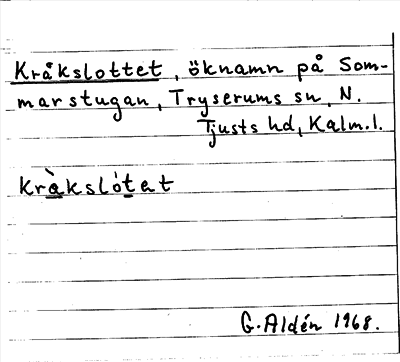 Kråkslottet, öknamn på Som-
marstugan, Tryserums sn, N.
Tjusts hd, Kalm.l.
kràkslótet
G. Aldén 1968.